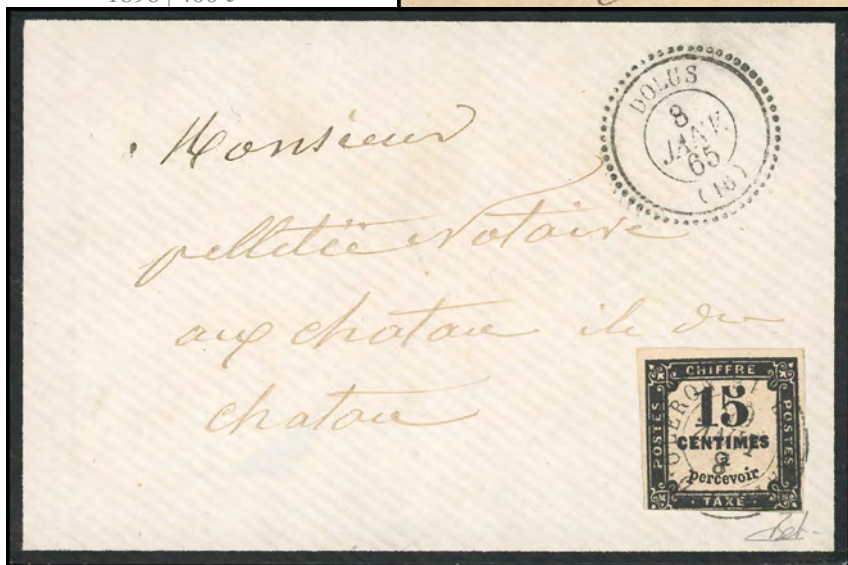 DOLUS
8
JANV.
65
(16)
Monsieur
pelletiée Notaire
aux chatau ile du
chatau
CHIFFRE
POSTES
15
CENTIMES
à
percevoir
POSTES
TAXE
OLERON
8